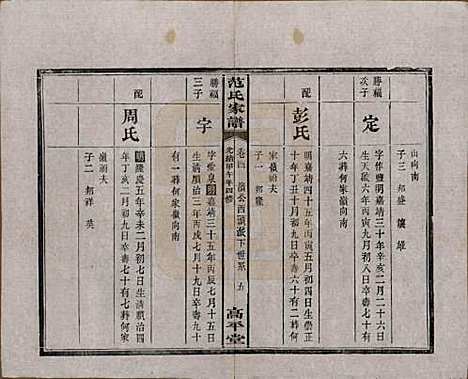 山向南
子三 邦盛 瀛 雄
勝福次子
定
字體 明嘉靖三十年辛亥二月二十六日
生天啟六年丙寅九月初八日卒壽七十
六葬何家嶺向南
配
彭氏
明嘉靖四十五年丙寅五月初四日生崇正
十年丁丑十月初九日卒壽七十有二葬何
家嶺祔夫
子一 邦慶
范氏家譜
卷四
光緒甲午年四修
五
高平堂
勝福三子
字
字堂吳明嘉靖三十五年丙辰七月十五日
生清順治三年丙戌七月初七日卒壽九十
有一葬何家嶺向南
配
周氏
明隆慶五年辛未二月初七日生清順治四
年丁亥二月初九日卒壽七十有七葬何家
嶺祔夫
子二 邦祥 英